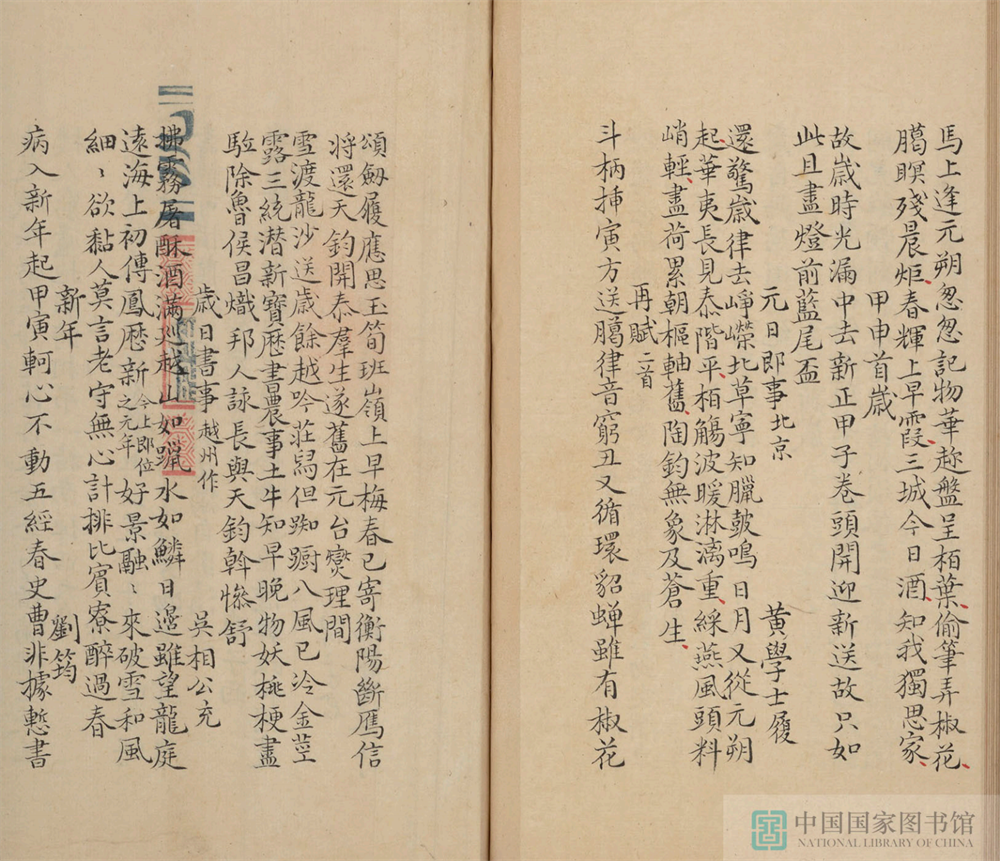 馬上逢元朔忽忽記物華趁盤呈栢葉偷筆弄椒花
臈暝殘晨炬春輝上早霞三城今日酒知我獨思家
甲申首歲
故歲時光漏中去新正甲子卷頭開迎新送故只如
此且盡燈前藍尾盃
元日即事北京
黄學士履
還驚歲律去崢嶸北草寧知臘皷鳴日月又從元朔
起華夷長見泰階平栢觴波暖淋漓重綵燕風頭料
峭輕盡荷累朝樞軸舊陶鈞無象及蒼生
再賦二首
斗柄挿寅方送臈律音窮丑又循環貂蟬雖有椒花
頌劒履應思玉筍班嶺上早梅春已寄衡陽斷鴈信
將還天鈞開泰羣生遂舊在元台燮理間
雪渡龍沙送歲餘越吟莊舄但踟蹰八風已泠金莖
露三統潜新寶歷書農事土牛知早晚物妖桃梗盡
駈除魯侯昌熾邦人詠長與天鈞斡慘舒
歲日書事越州作
吳相公充
拂霧屠酥酒滿巡越山如蠟水如鱗日邊雖望龍庭
遠海上初傳鳳歷新今上即位之元年好景融〻來破雪和風
細〻欲黏人莫言老守無心計排比賓寮醉過春
新年
劉筠
病入新年起甲寅軻心不動五經春史曹非據慙書
中国国家图书馆
NATIONAL LIBRARY OF CHINA